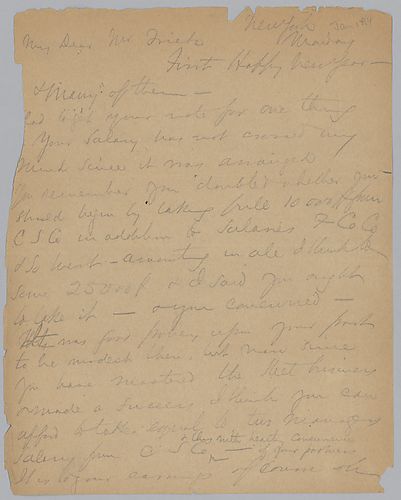 New York Jan 1/84
My Dear Mr. Frick Monday
First Happy New Year —
& Many of them —
Glad to get your note for one thing
Your Salary has not crossed my
mind since it was arranged
You remember you doubted whether you
should begin by taking full 10 000 from
C S Co in addition to Salaries F Co Co
& So West — amounting in all I think to
some 25000$ & I said you ought
to take it — & you concurred —
was good policy upon your part
to be modest there, but now since
you have mastered the Steel business
& made a success I think you can
afford to take equal to
Salary from C S Co — & this with hearty concurrence
of your partners
It is to your of course